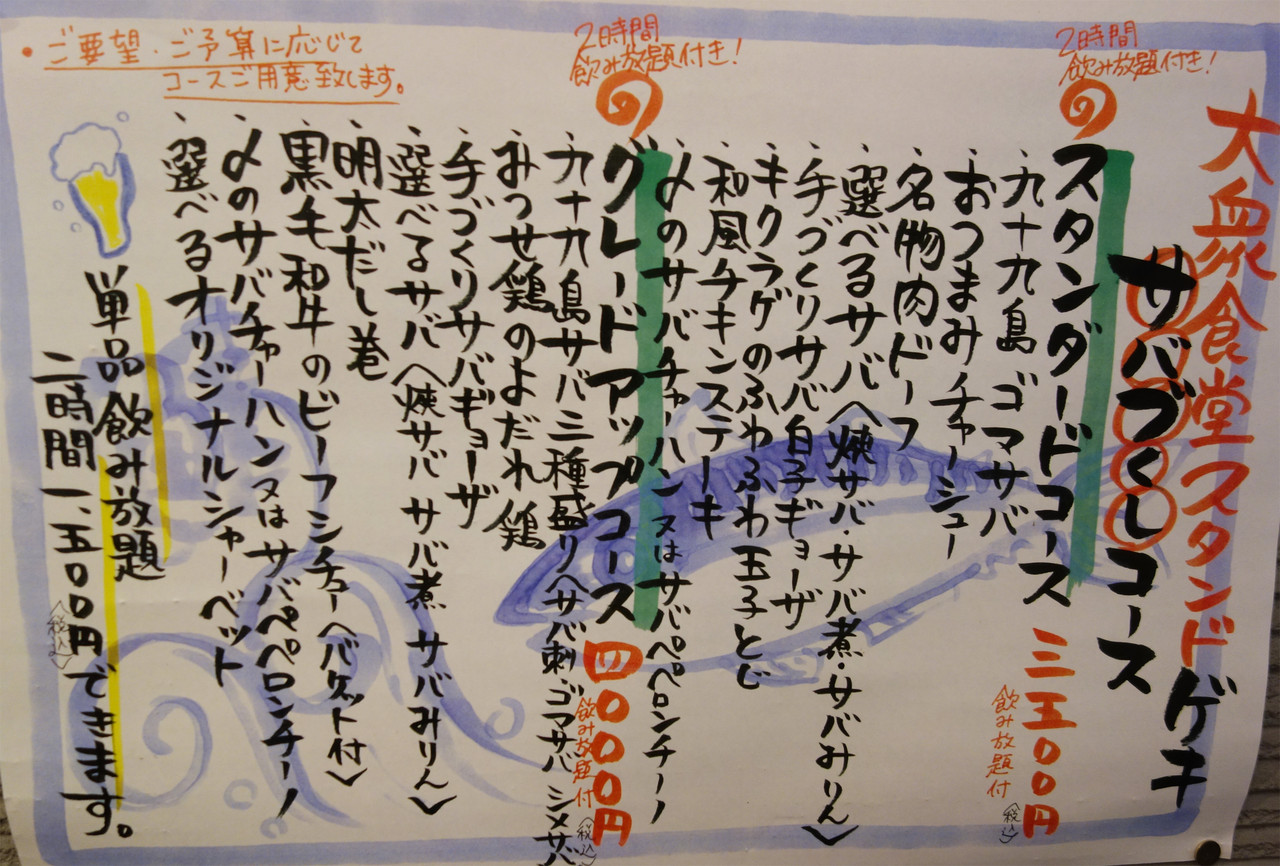 大衆食堂スタンドゲキ
サバづくしコース
2時間
飲み放題付き!
スタンダードコース 三五〇〇円
飲み放題付
〈税込〉
、九十九島ゴマサバ
、おつまみチャーシュー
、名物肉ドーフ
、選べるサバ〈焼サバ・サバ煮・サバみりん〉
、手づくりサバ白子ギョーザ
、キクラゲのふわふわ玉子とじ
、和風チキンステーキ
、〆のサバチャーハン又はサバペペロンチーノ
2時間
飲み放題付き!
グレードアップコース 四〇〇〇円
飲み放題付
〈税込〉
、九十九島サバ三種盛り〈サバ刺 ゴマサバ シメサバ
、みつせ鶏のよだれ鶏
、手づくりサバギョーザ
、選べるサバ〈焼サバ サバ煮 サバみりん〉
、明太だし巻
、黒毛和牛のビーフシチュー〈バゲット付〉
、〆のサバチャーハン又はサバペペロンチーノ
、選べるオリジナルシャーベット
・ご要望・ご予算に応じて
コースご用意致します。
単品飲み放題
二時間一、五〇〇円できます。
〈税込〉